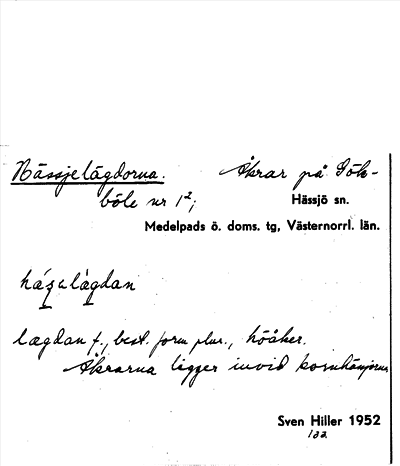 Hässjelägdorna. Åkrar på Gök-
böle nr 1²,
Hässjö sn.
Medelpads ö. doms. tg, Västernorrl. län.
lægdan f., best. form plur., höåker.
Åkrarna ligger invid kornhässjorna
Sven Hiller 1952